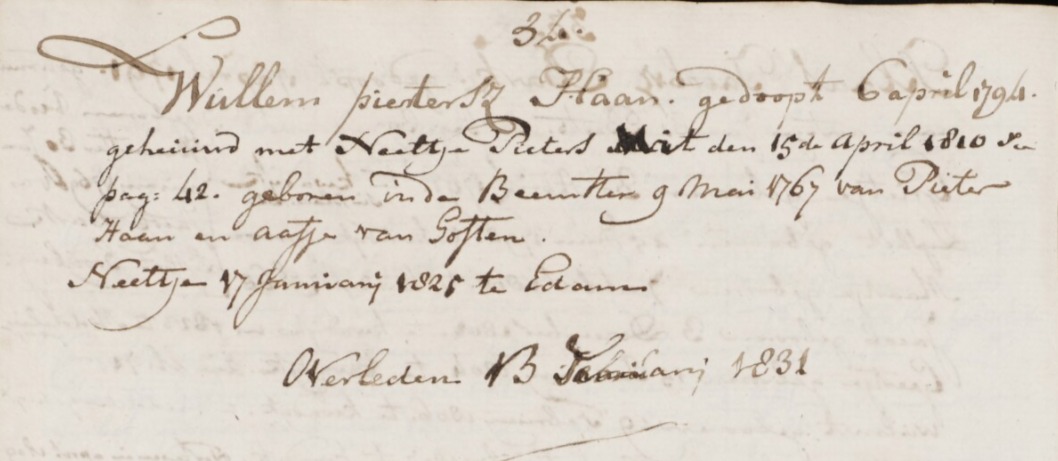 34.
Willem pietersz Haan. gedoopt 6 april 1794.
getrouwd met Neeltje Pieters den 15de April 1810 zie
pag: 42. geboren inde Beemster 9 Mai 1767 van Pieter
Haan en aafje van Gosten.
Neeltje 17 Januarij 1825 te Edam
Overleden 13 Februarij 1831